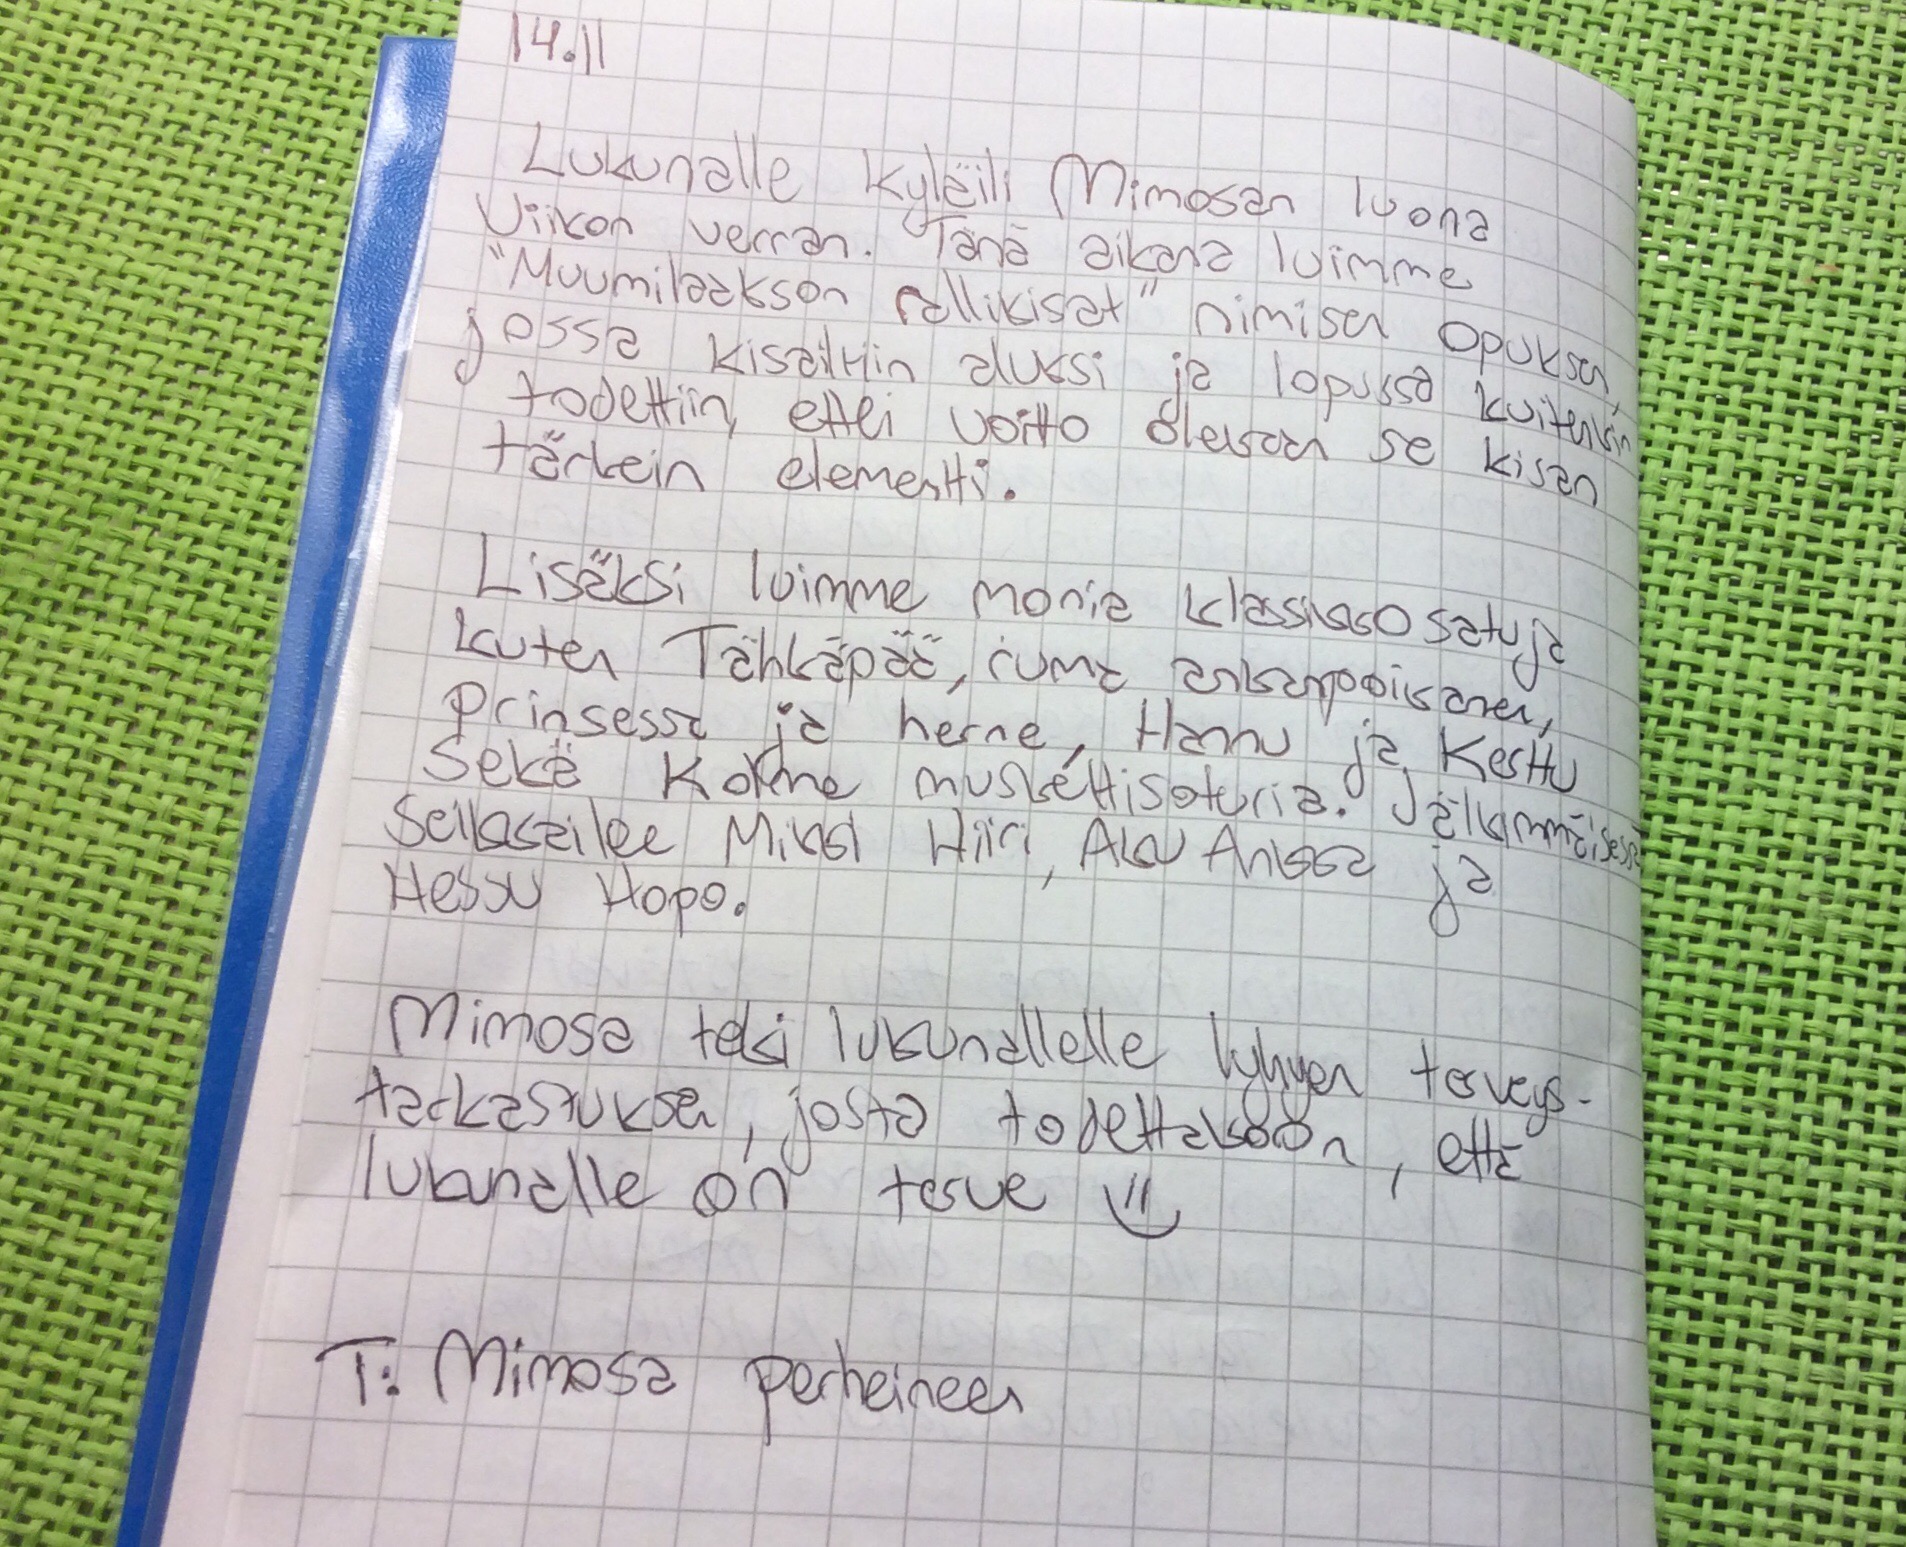 14.11
Lukunalle kyläili Mimosan luona
Viikon verran. Tänä aikana luimme
"Muumilaakson rallikisat" nimisen opuksen,
jossa kisailtiin aluksi ja lopussa kuitenkin
todettiin, ettei voitto olekaan se kisan
tärkein elementti.
Lisäksi luimme monia klassikko satuja
kuten Tähkäpää, ruma ankanpoikanen,
Prinsessa ja herne, Hannu ja Kerttu
Sekä Kolme muskettisoturia. Jälkimmäisessä
Seikkailee Mikki Hiiri, Aku Ankka ja
Hessu Hopo.
Mimosa teki lukunallelle lyhyen terveys-
tarkastuksen, josta todettakoon, että
lukunalle on terve
T: Mimosa perheineen